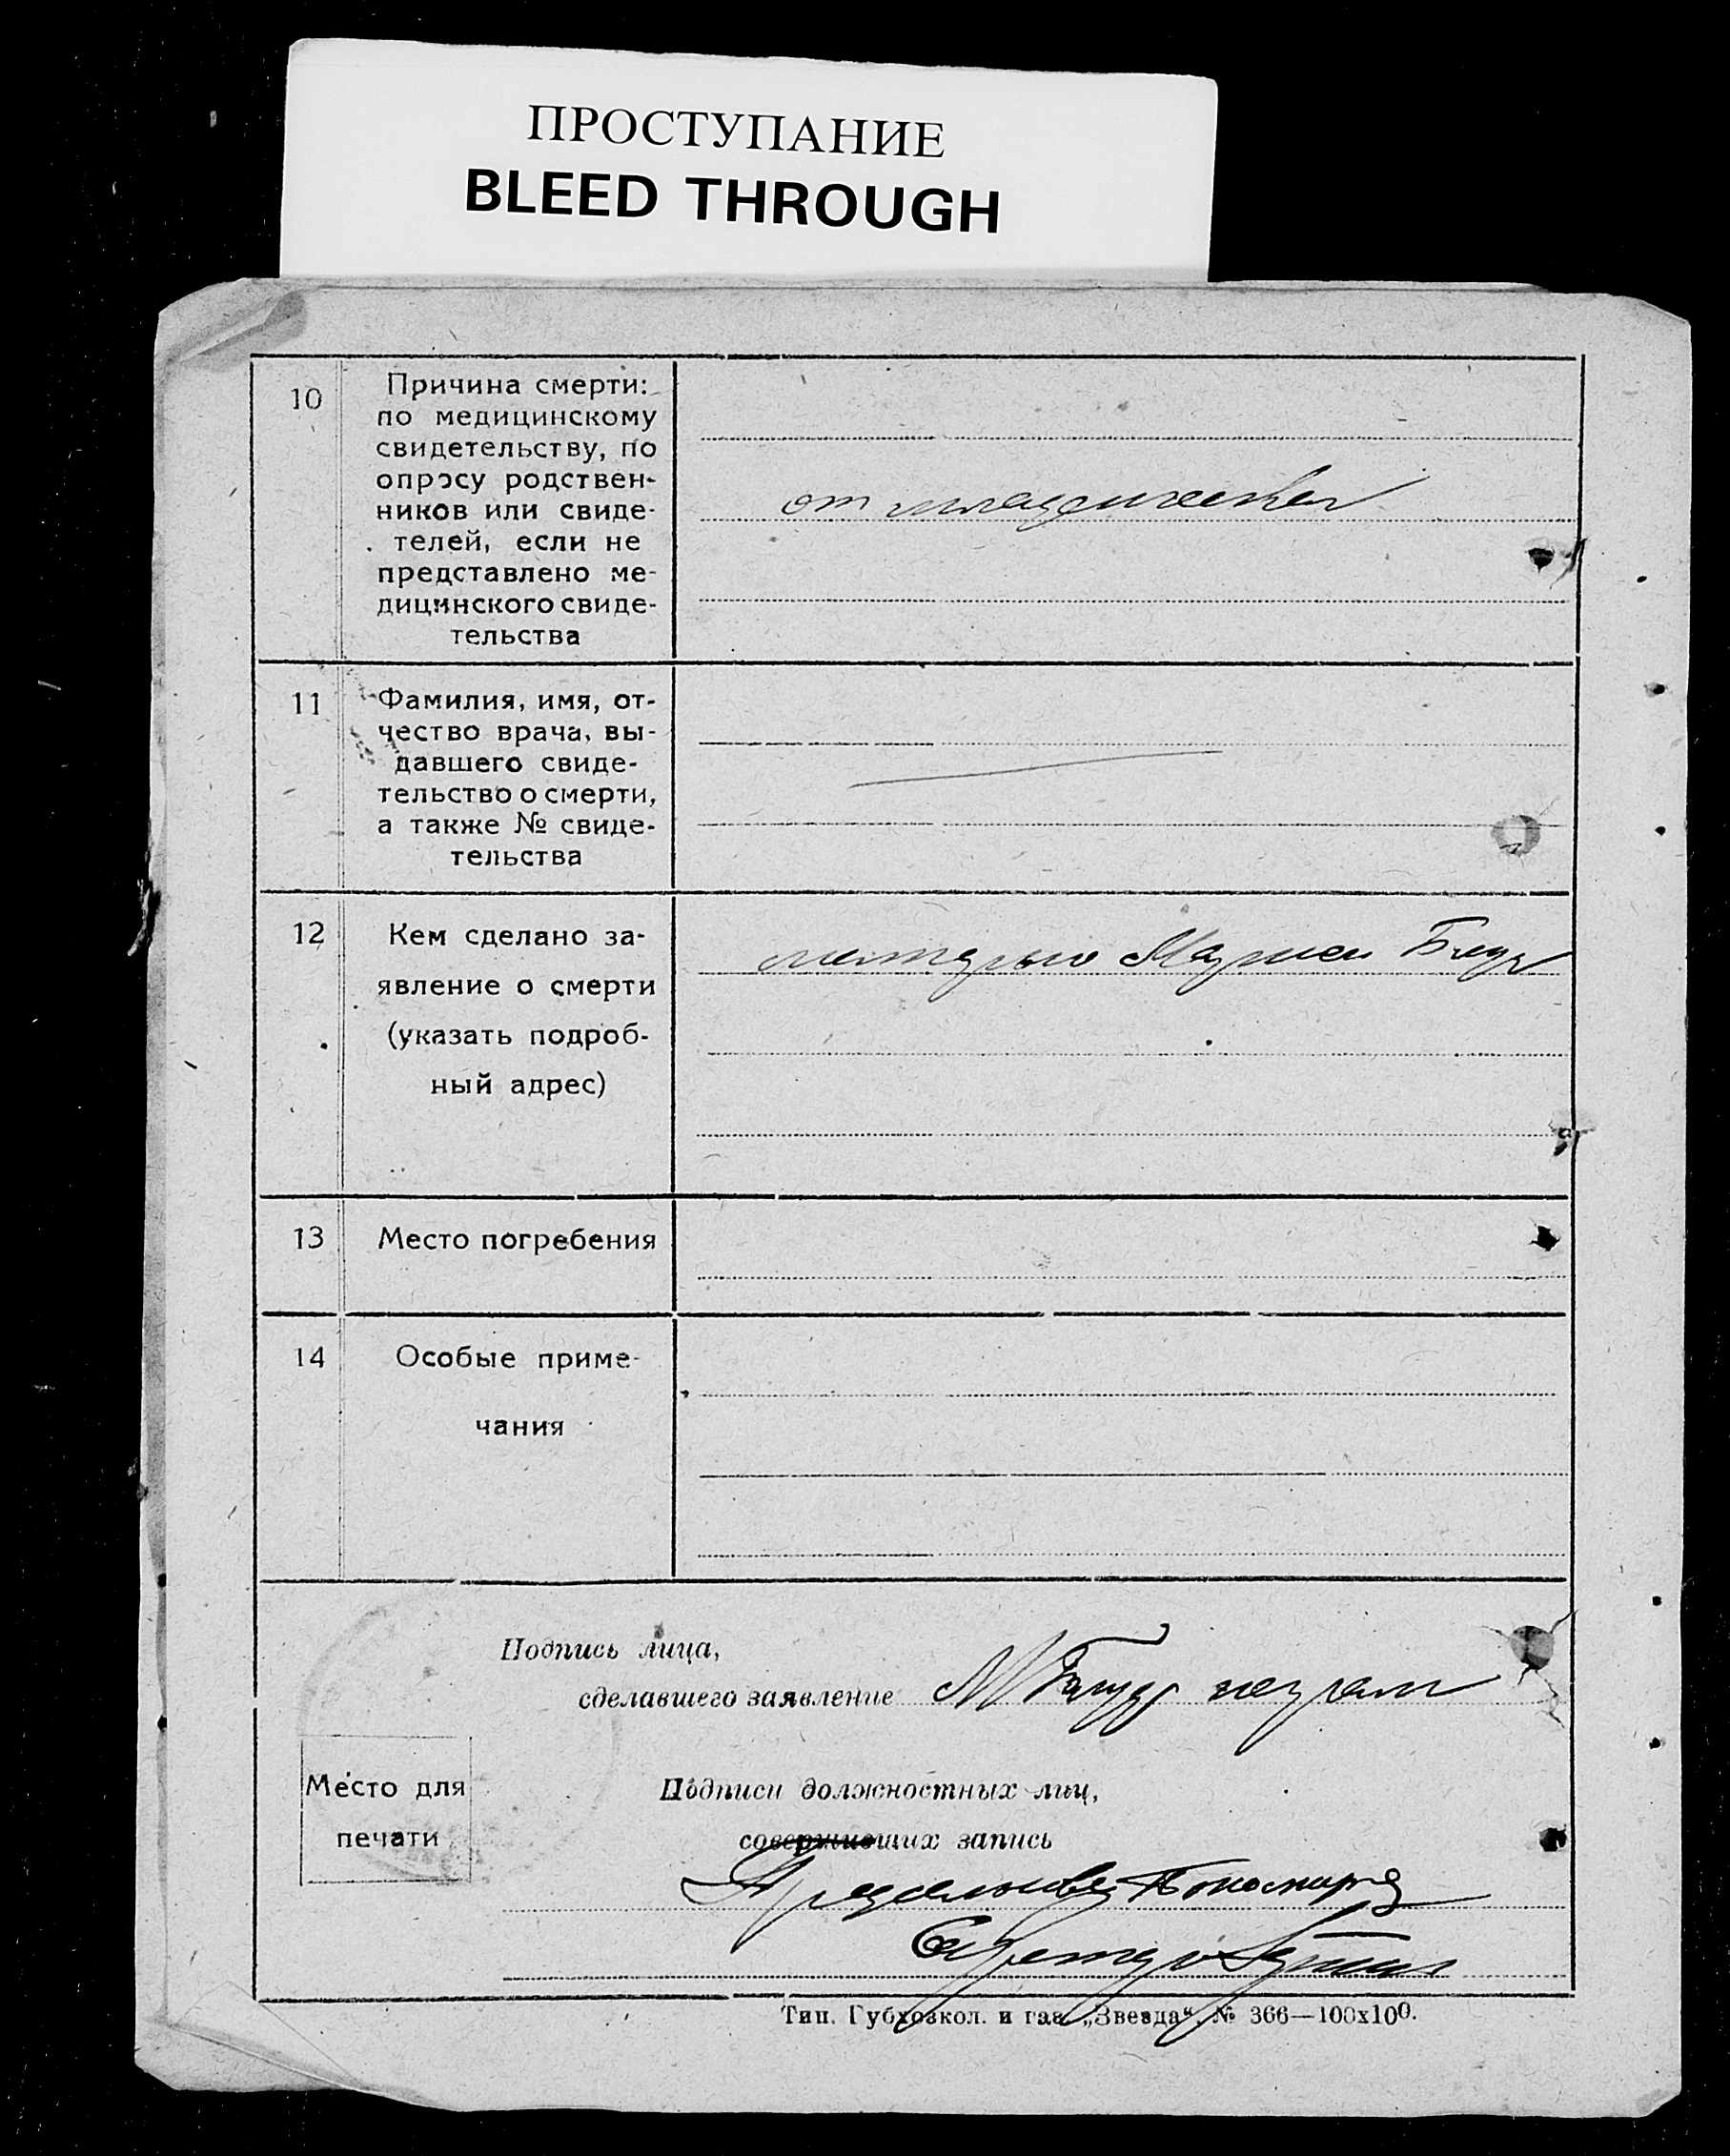 ПРОСТУПАНИЕ
BLEED THROUGH
10
Причина смерти:
по медицинскому
свидетельству, по
опросу родствен-
ников или свиде-
телей, если не
представлено ме-
дицинского свиде-
тельства
от младенческой
11
Фамилия, имя, от-
чество врача, вы-
давшего свиде-
тельство о смерти,
а также № свиде-
тельства
12
Кем сделано за-
явление о смерти
(указать подроб-
ный адрес)
матерью Марией
13
Место погребения
14
Особые приме-
чания
Подпись лица,
сделавшего заявление
М
Место для
печати
Подписи должностных лиц,
совершивших запись
Секретарь
Тип. Губхозкол. и газ. „Звезда“. № 366—100х100.